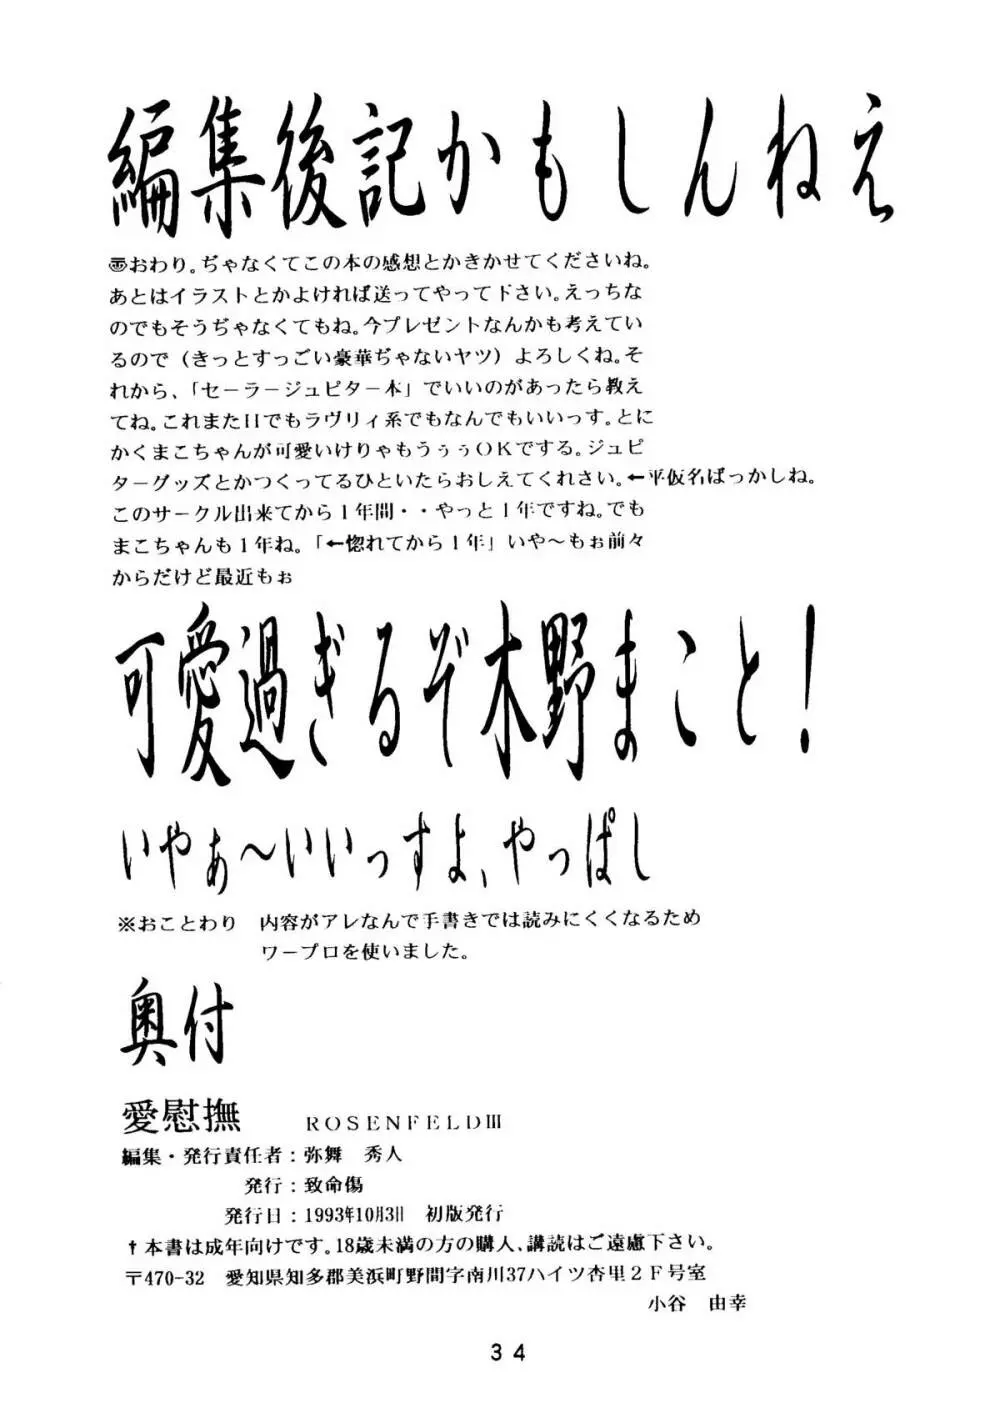 編集後記かもしんねえ
おわり。ぢゃなくてこの本の感想とかきかせてくださいね。
あとはイラストとかよければ送ってやって下さい。えっちな
のでもそうぢゃなくてもね。今プレゼントなんかも考えてい
るので（きっとすっごい豪華ぢゃないヤツ）よろしくね。そ
れから、「セーラージュピター本」でいいのがあったら教え
てね。これまたHでもラヴリィ系でもなんでもいいっす。とに
かくまこちゃんが可愛いけりゃもうぅぅOKでする。ジュピ
ターグッズとかつくってるひといたらおしえてくれさい。←平仮名ばっかしね。
このサークル出来てから１年間・・やっと１年ですね。でも
まこちゃんも１年ね。「←惚れてから１年」いや〜もぉ前々
からだけど最近もぉ
可愛過ぎるぞ木野まこと！
いやぁ〜いいっすよ、やっぱし
※おことわり　内容がアレなんで手書きでは読みにくくなるため
ワープロを使いました。
奥付
愛慰撫　ＲＯＳＥＮＦＥＬＤⅢ
編集・発行責任者：弥舞　秀人
発行：致命傷
発行日：1993年10月3日　初版発行
†本書は成年向けです。18歳未満の方の購入、講読はご遠慮下さい。
〒470-32　愛知県知多郡美浜町野間字南川37ハイツ杏里２Ｆ号室
小谷　由幸
３４